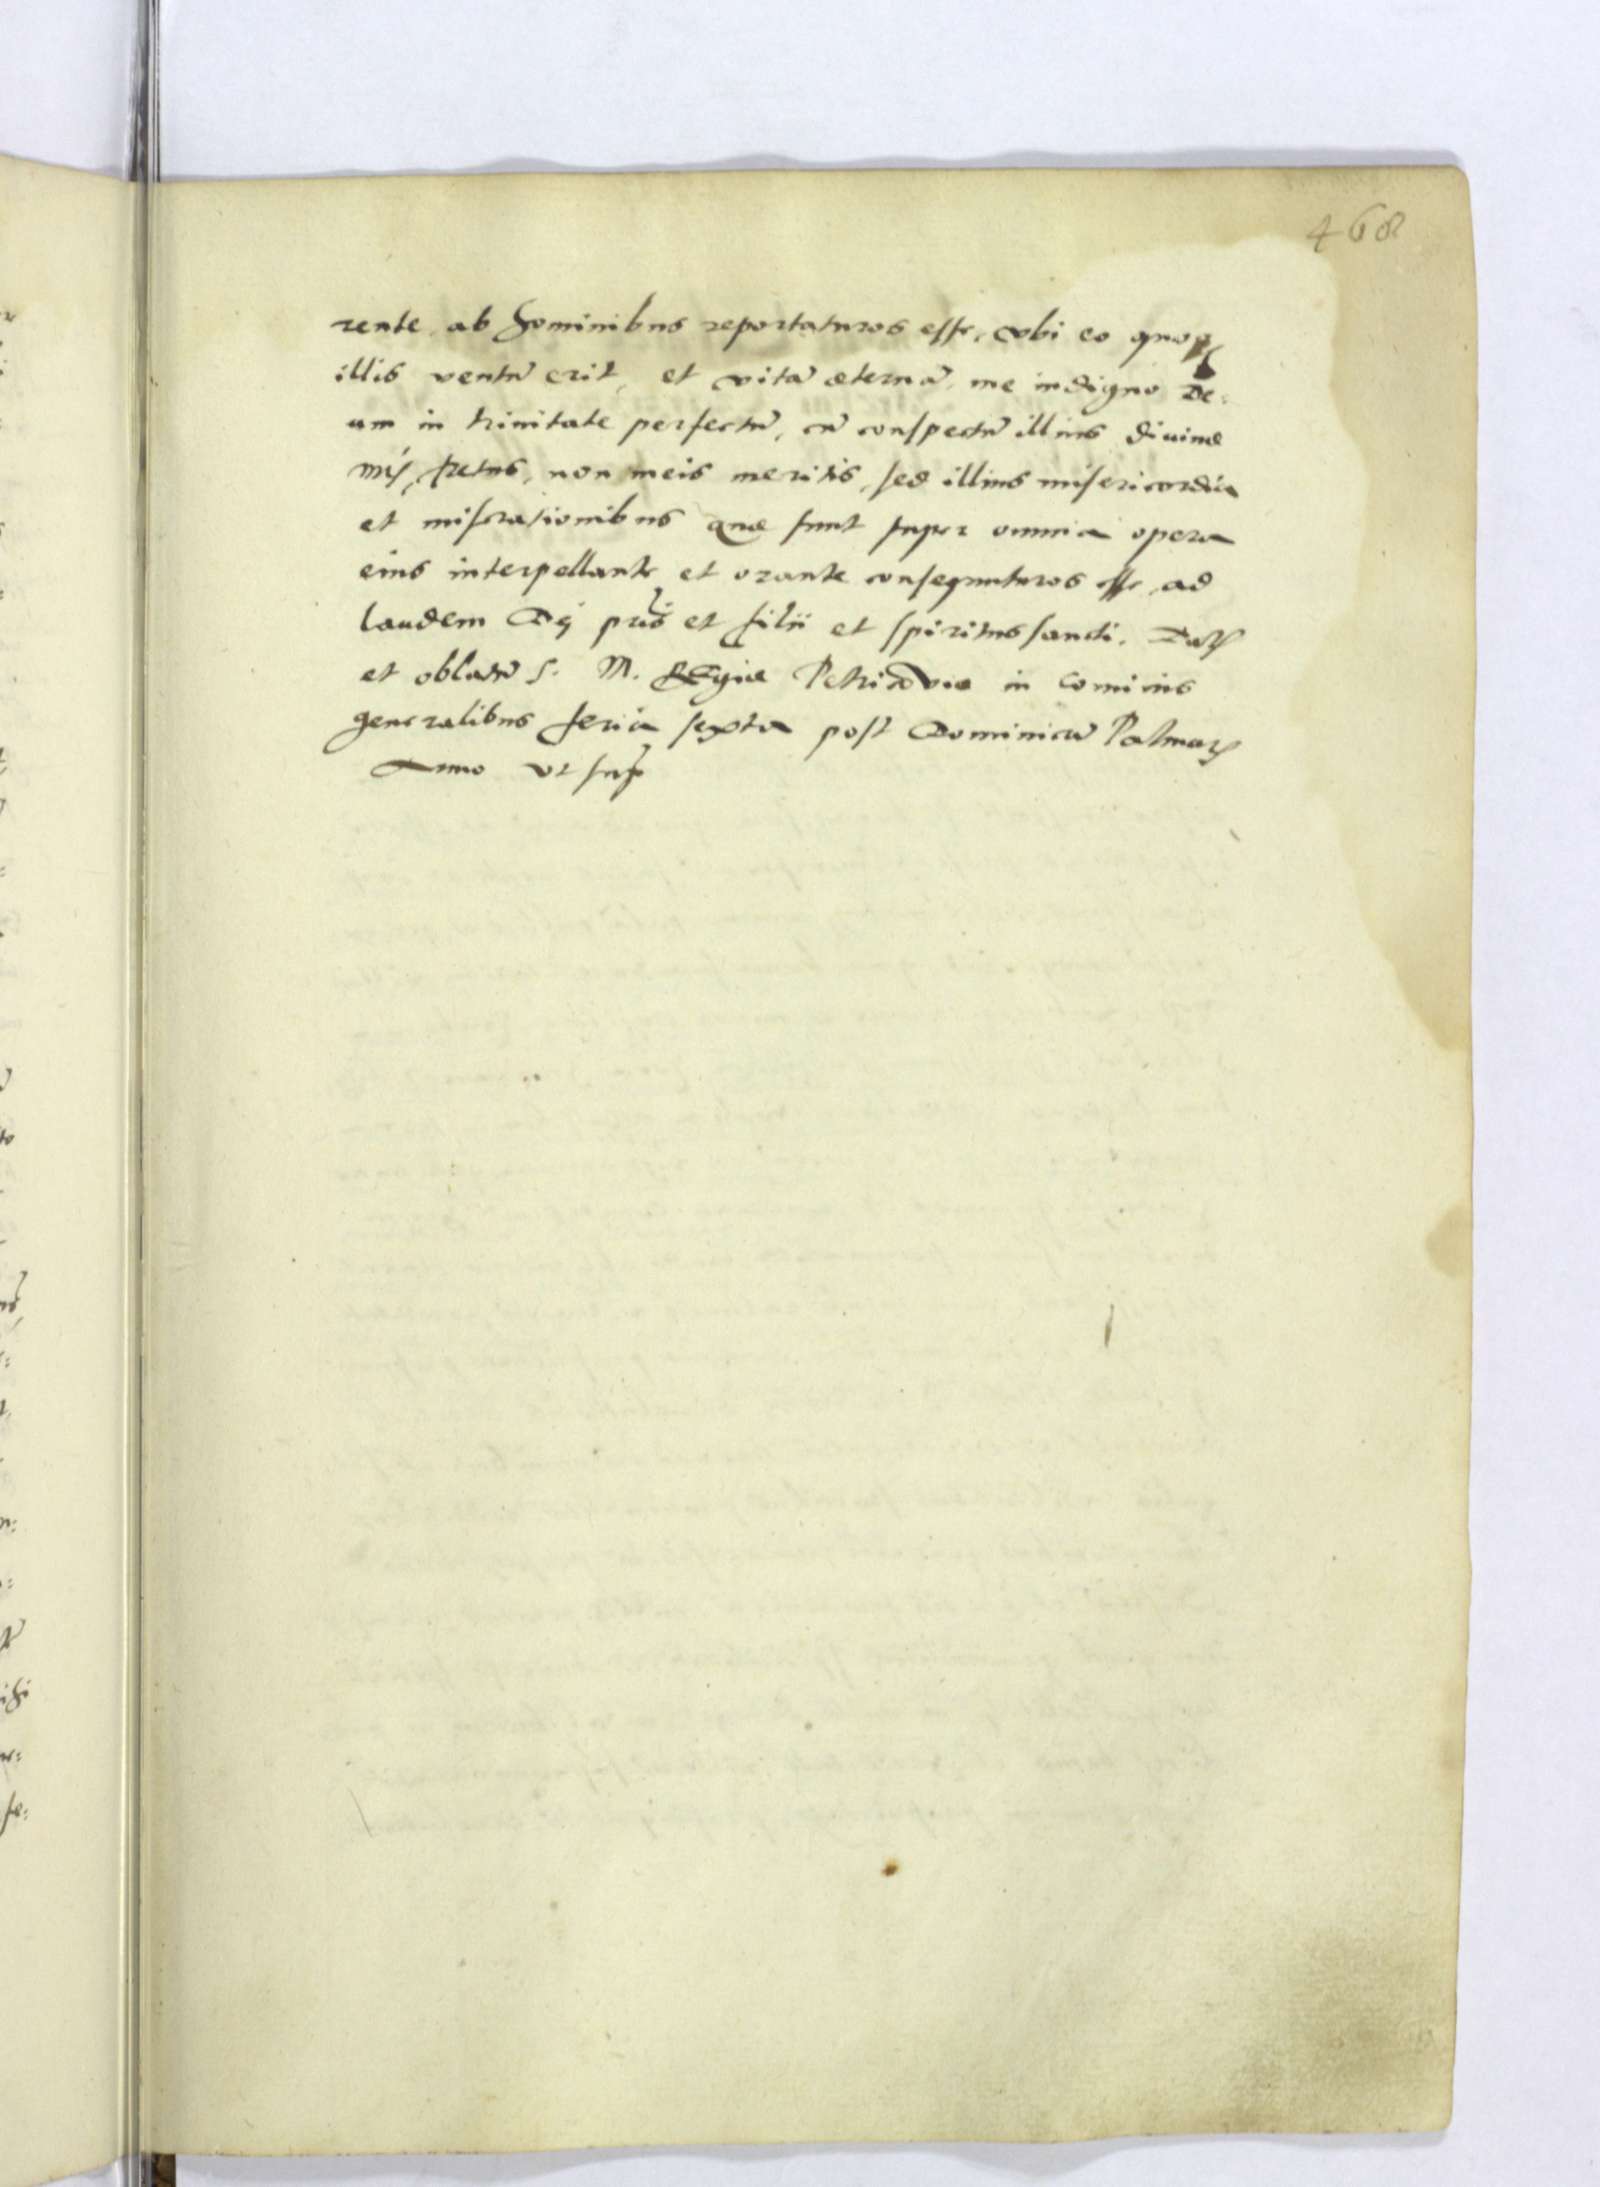 468
rente, ab hominibus reportaturos esse, vbi eo quoqȝ
illis ventũ erit, et vitã æternã, me indigno De:
um in trinitate perfectũ, cũ conspectũ illius diuinæ
mtis, fretus, non meis meritis, sed illius misericordia
et miserationibus quæ sunt super omnia opera
eius interpellante et orante consequuturos esse, ad
laudem Dei pris et filii et spiritus sancti. Datȝ
et oblatũ S. M. Regiæ Petricoviæ in Comiciis
generalibus feria sexta post Dominicã Palmarȝ
Anno vt sup̃